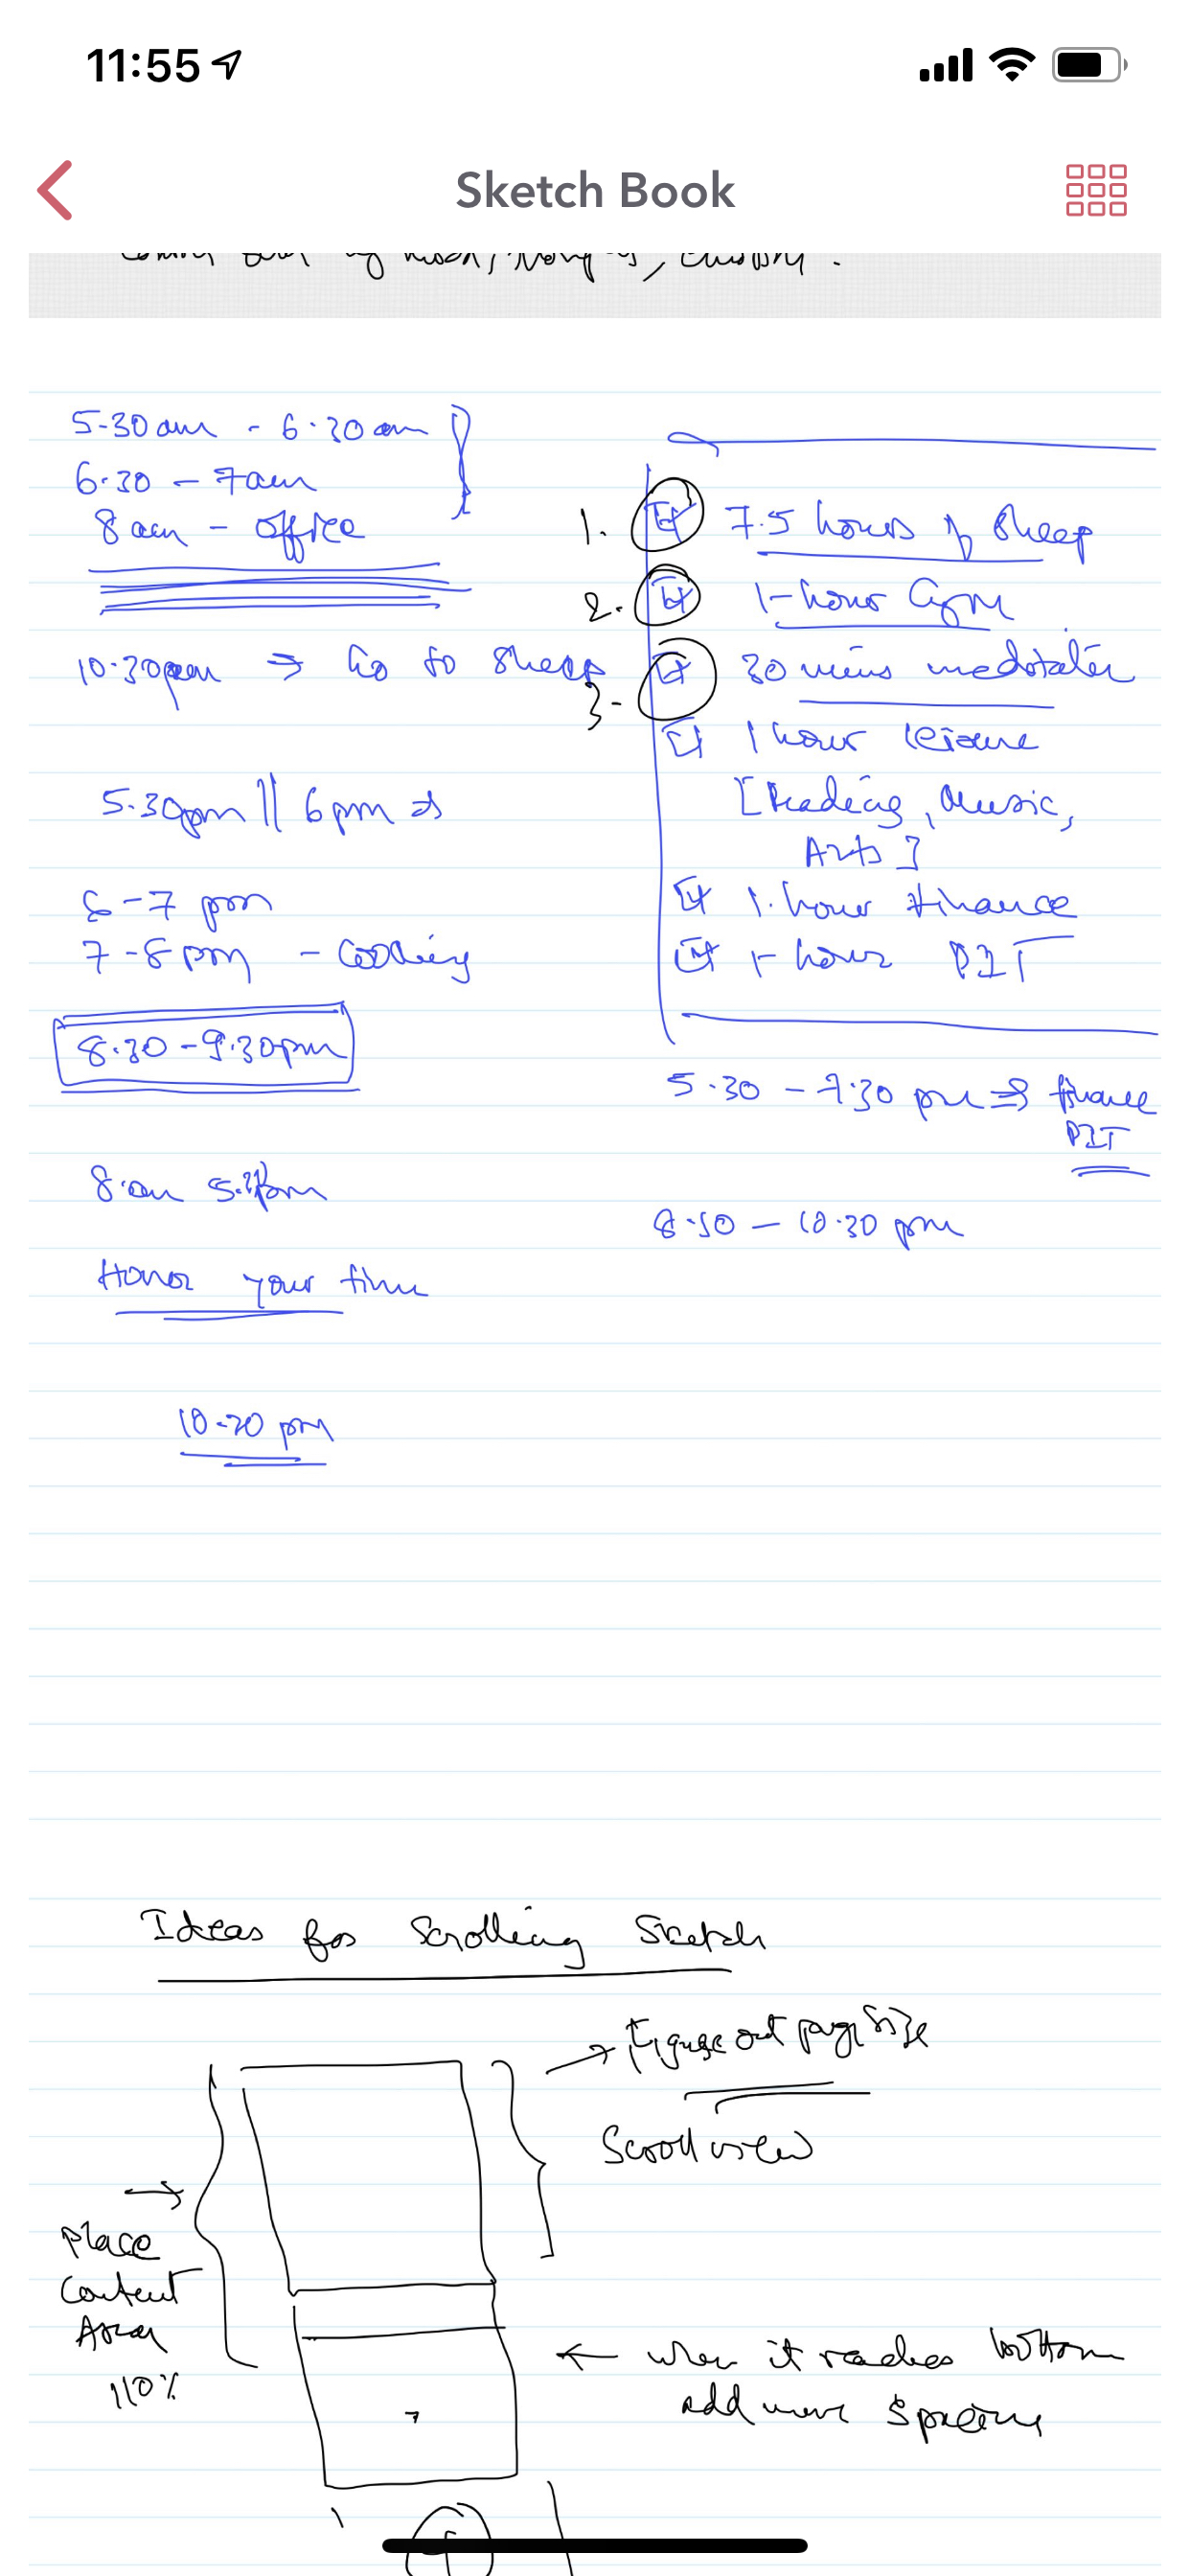 11:55
Sketch Book
5-30am - 6.30am
6.30 - 7am
8am - office
10.30pm → Go to Sleep
5.30pm || 6pm ⇒
6-7 pm
7-8pm - Cooking
8.30-9.30pm
8.am 5.30pm
Honor your time
10-30 pm
1. 7.5 hours of Sleep
2. 1-hour Gym
3. 30 mins meditation
1 hour leisure
[Reading, Music,
Arts]
1. hour finance
1-hour PIT
5.30 - 7.30 pm ⇒ finance
PIT
8.50 - 10.30 pm
Ideas for Scrolling Sketch
→ Figure out page size
Scroll view
→
Place
Content
Area
110%
← when it reaches bottom
add more spacing